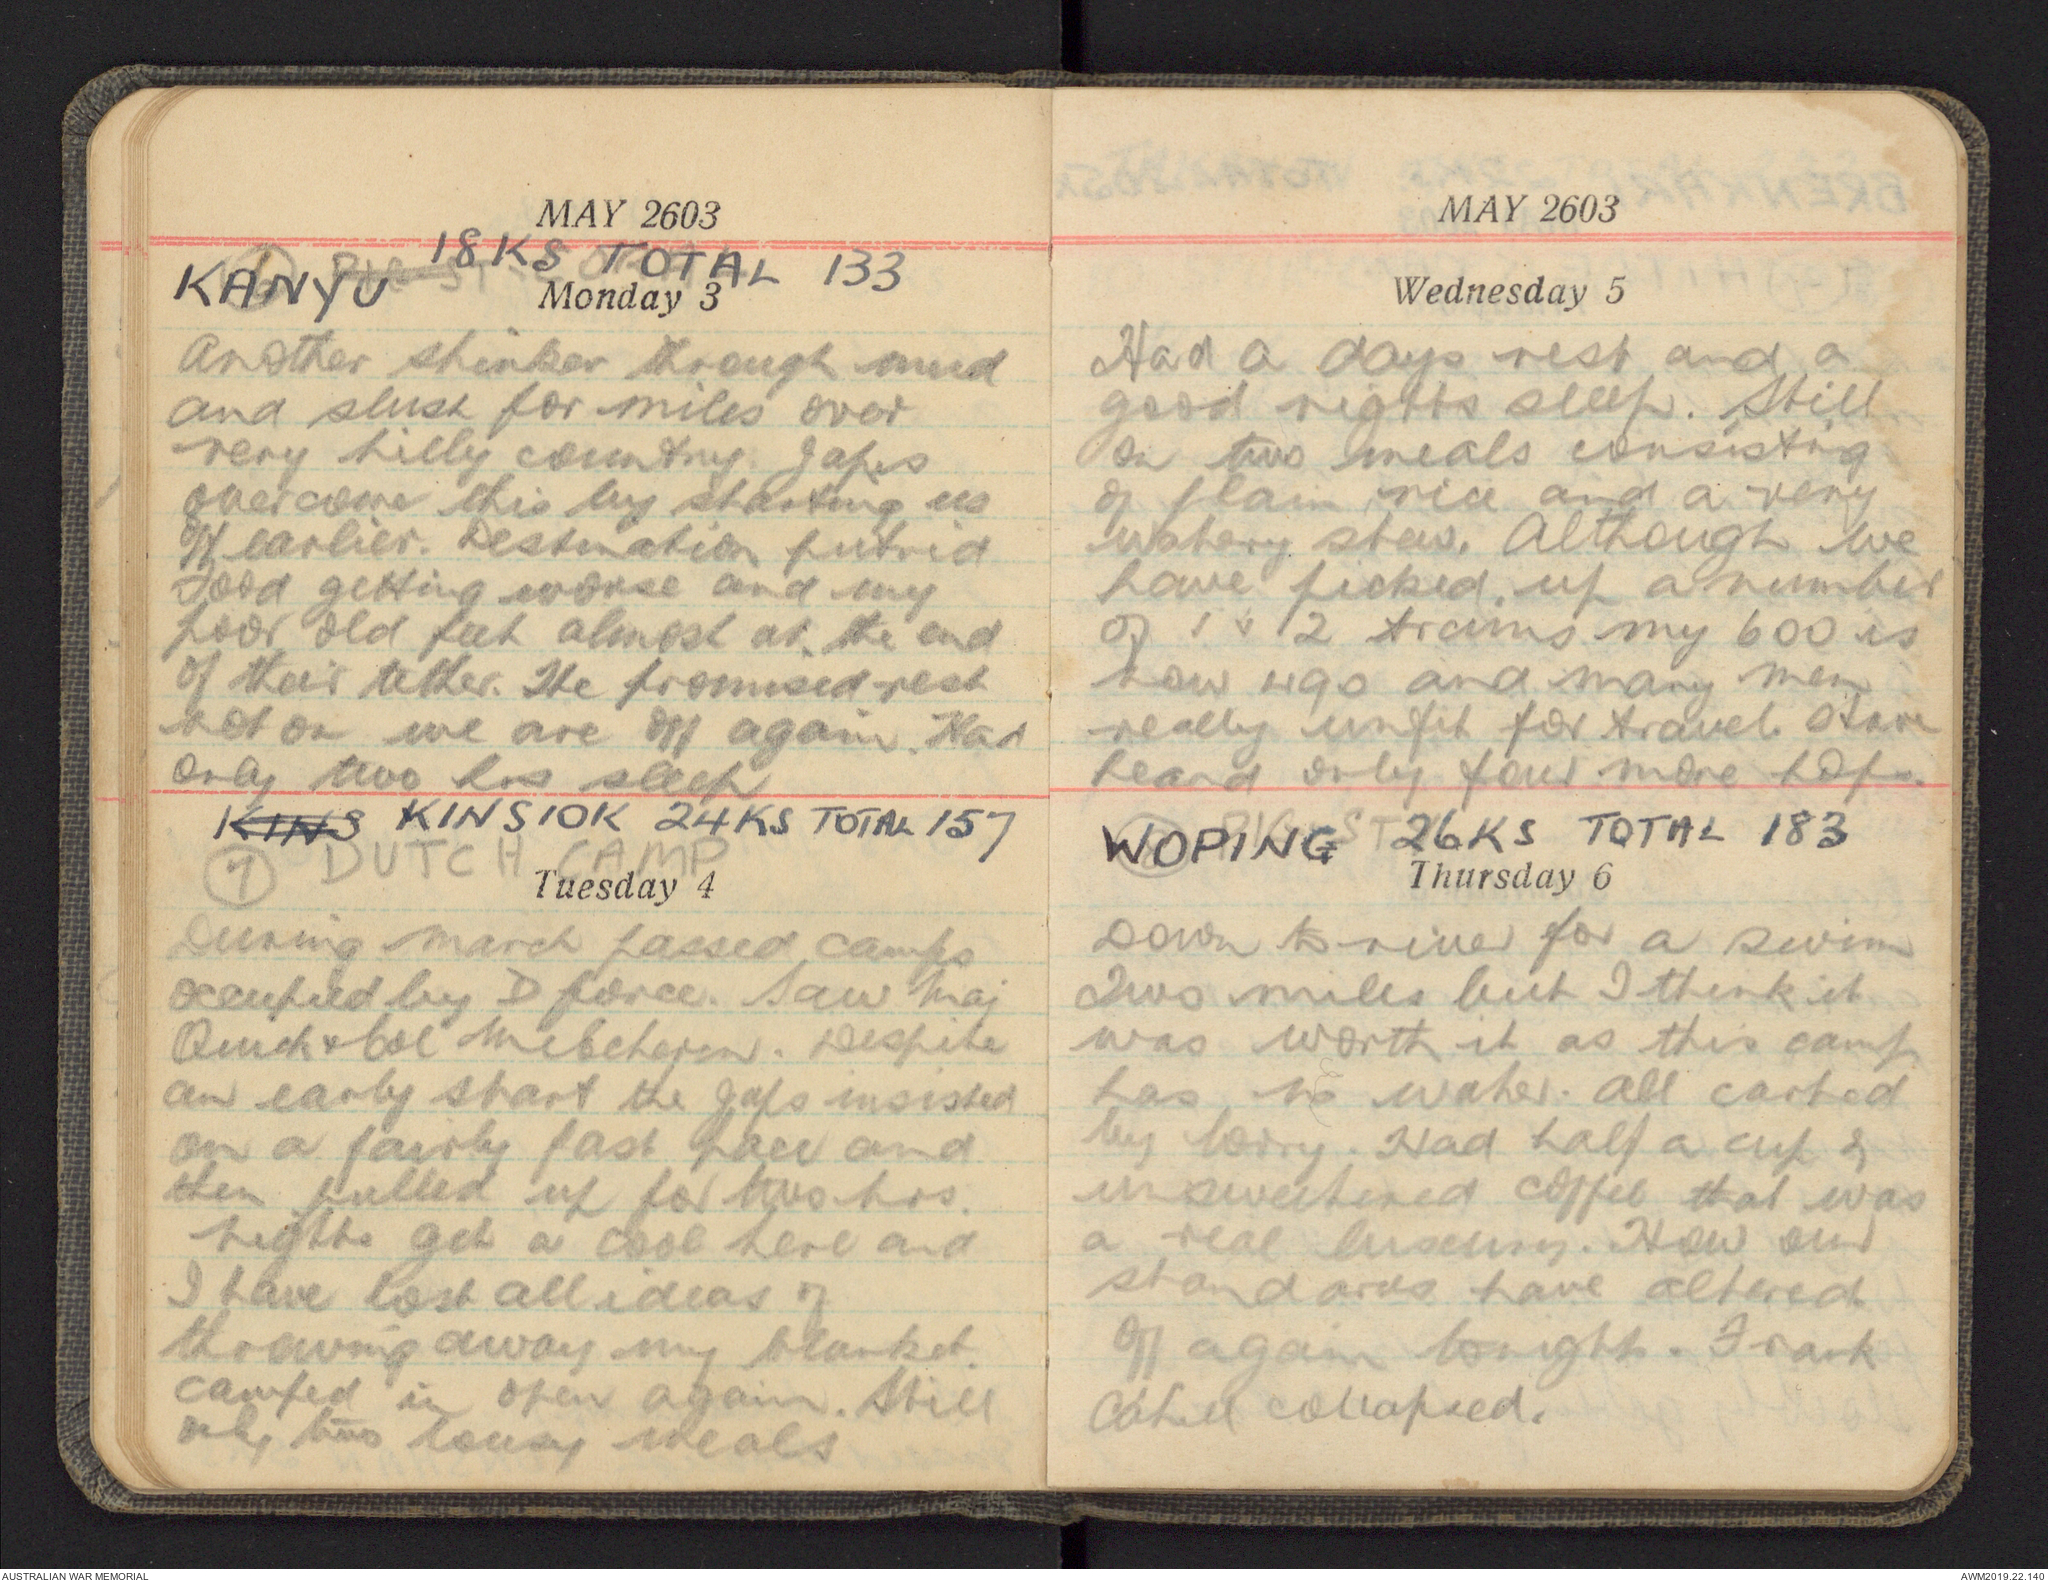 MAY 2603
18KS TOTAL 133
KANYU
Monday 3
Another stinker through mud
and slush for miles over
very hilly country. Japs
overcome this by starting us
off earlier. Destination putrid
Food getting worse and my
poor old feet almost at the end
of their tether. The promised rest
not on we are off again. Had
only two hrs sleep
KINS KINSIOK 24KS TOTAL 157
7 DUTCH CAMP
Tuesday 4
During march passed camps
occupied by D force. Saw Maj
Quick & Col McEcheren. Despite
an early start the Japs insisted
on a fairly fast pace and
then pulled up for two hrs.
nights get a cool here and
I have lost all ideas of
throwing away my blanket.
camped in open again. Still
only two lousy meals
MAY 2603
Wednesday 5
Had a days rest and a
good nights sleep. Still
on two meals consisting
of plain rice and a very
watery stew. Although we
have picked up a number
of 1 & 2 trains my 600 is
now 490 and many men
really unfit for travel. Have
heard only four more hops.
WOPING 26KS TOTAL 183
Thursday 6
Down to river for a swim
Two miles but I think it
was worth it as this camp
has no water. All carted
by lorry. Had half a cup of
unsweetened coffee that was
a real luxury. How our
standards have altered
off again tonight. Frank
Cahill collapsed.
AUSTRALIAN WAR MEMORIAL
AWM2019.22.140